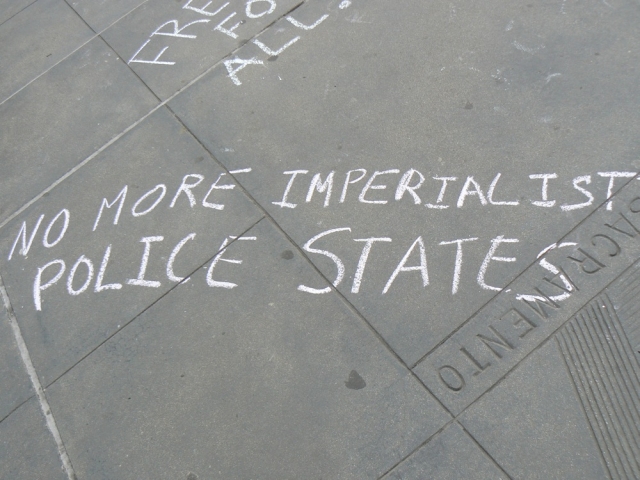 FREE
FO
ALL!
NO MORE IMPERIALIST
POLICE STATES
SACRAMENTO